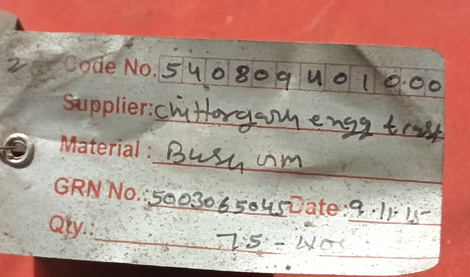 2 Code No. 540809401000
Supplier: Chittorgarh engg
Material : Bush
GRN No.: 5003065045 Date: 9.11.15
Qty.: 75 - Nos